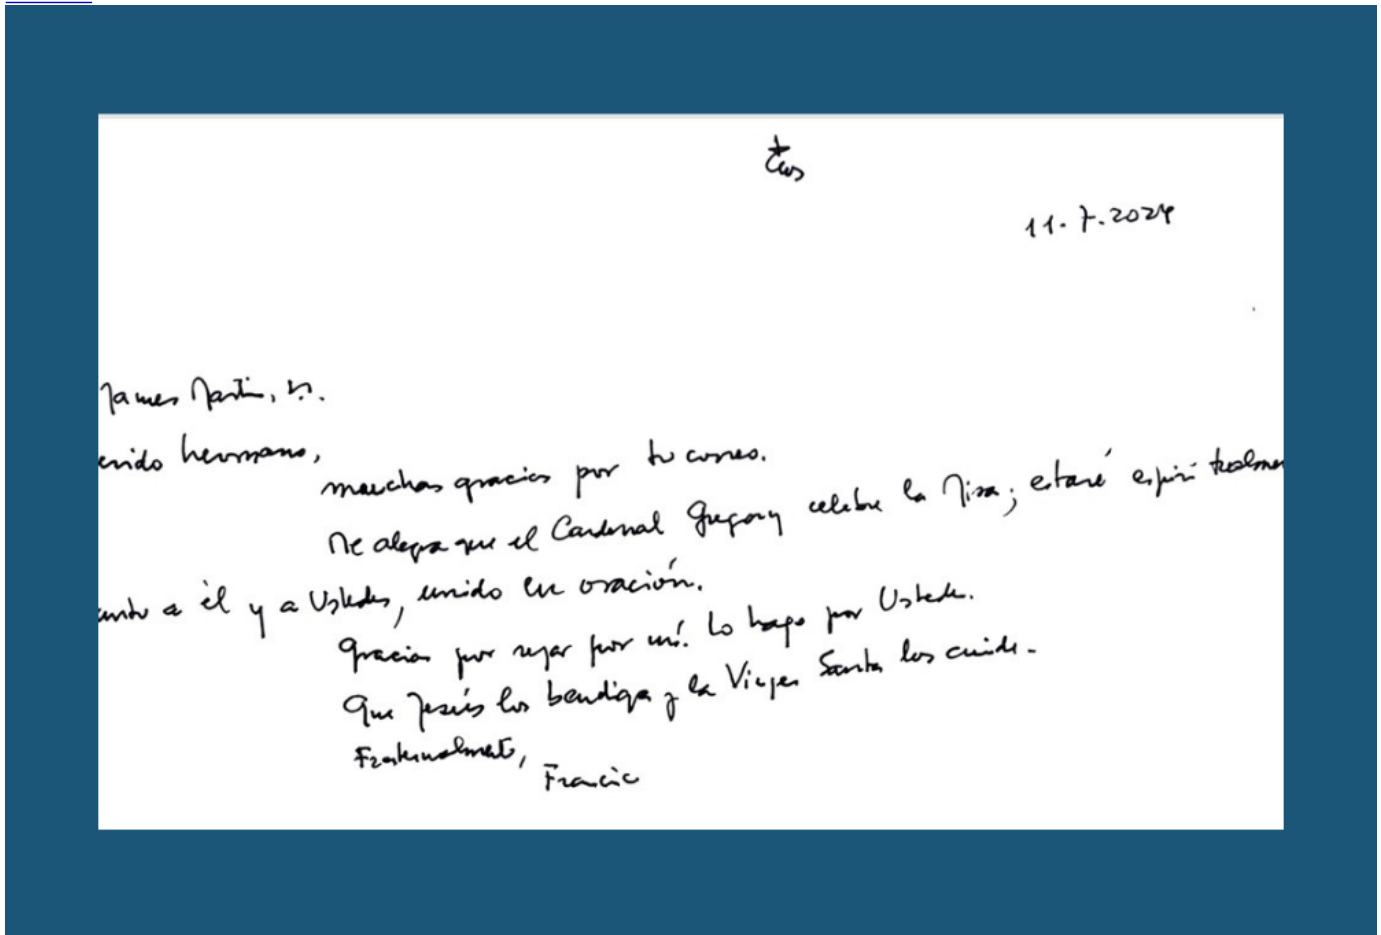 11.7.2024
James Martin, sj.
erido hermano,
muchas gracias por tu correo.
Me alegra que el Cardenal Gregory celebre la Misa; estaré espiritualmen
unto a él y a Ustedes, unido en oración.
Gracias por rezar por mí. Lo hago por Ustedes.
Que Jesús los bendiga y la Virgen Santa los cuide.
Fraternalmente,
Francisco